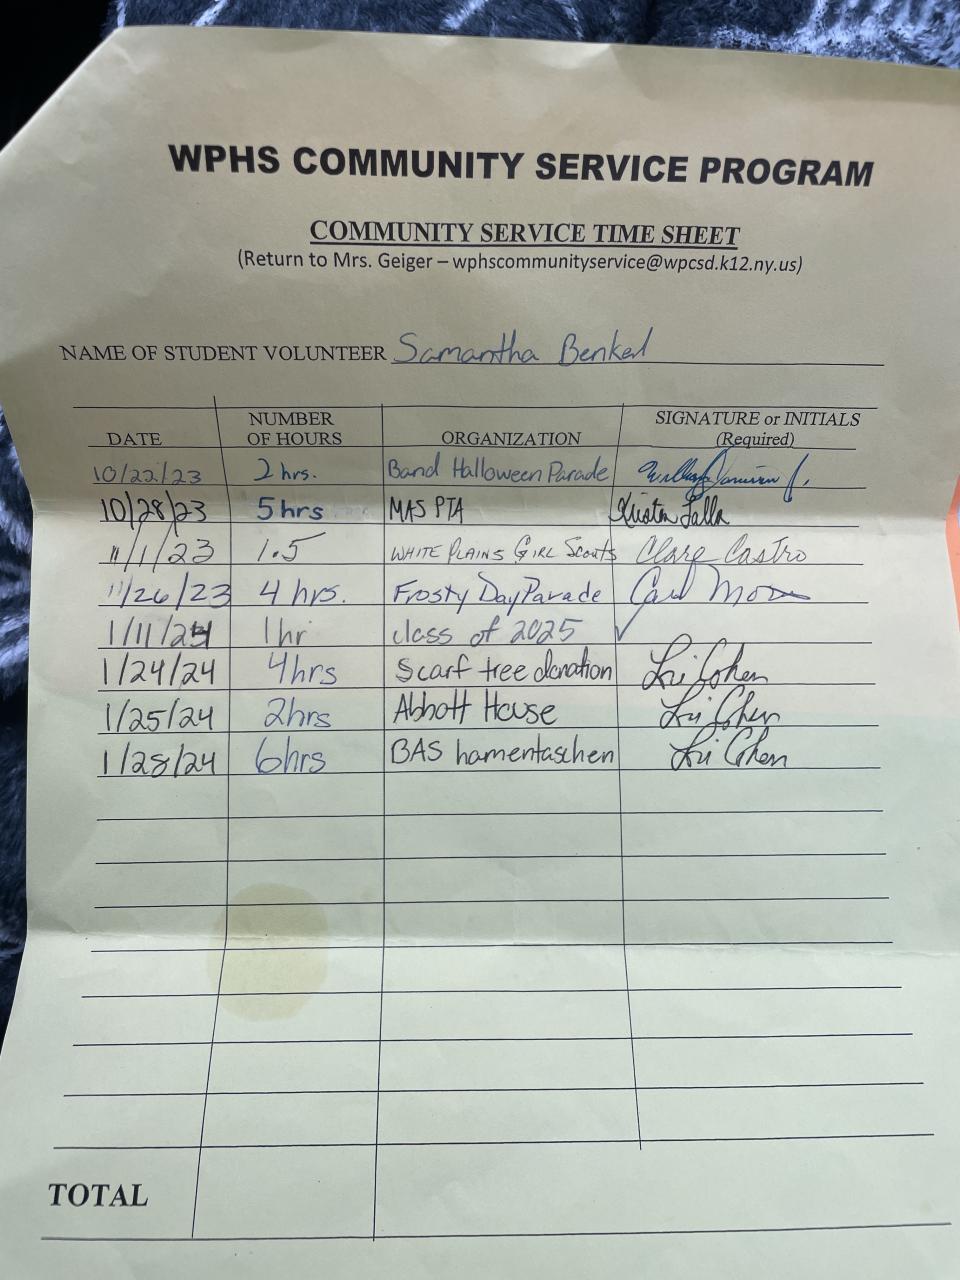 WPHS COMMUNITY SERVICE PROGRAM
COMMUNITY SERVICE TIME SHEET
(Return to Mrs. Geiger – wphscommunityservice@wpcsd.k12.ny.us)
NAME OF STUDENT VOLUNTEER Samantha
DATE NUMBER OF HOURS ORGANIZATION SIGNATURE or INITIALS (Required)
10/22/23 2 hrs. Band Halloween Parade
10/28/23 5 hrs MAS PTA
11/1/23 1.5 WHITE PLAINS GIRL SCOUTS Clare Castro
11/26/23 4 hrs. Frosty Day Parade
1/11/24 1 hr class of 2025 ✓
1/24/24 4hrs Scarf tree donation Lori Cohen
1/25/24 2hrs Abbott House Lori Cohen
1/28/24 6hrs BAS hamentaschen Lori Cohen
TOTAL